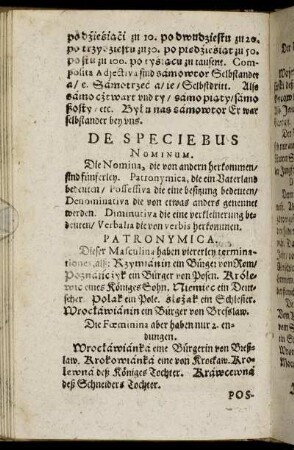 po dźieśiąći zu 10. po dwudźiestu zu 20.
po trzydźiestu zu 30. po piędźieśiąt zu 50.
po stu zu 100. po tyśiącu zu tausent. Com-
posita Adjectiva sind samowtor Selbstander
a/ e. Samotrzeć a/ie/ Selbstdritt. Also
samo cztwart und ry/ samo piąty/ samo
szósty/ etc. Był u nas samowtor Er war
selbstander bey uns.
DE SPECIEBUS
NOMINUM.
Die Nomina, die von andern herkommen,
sind fünferley. Patronymica, die ein Vaterland
bedeuten/ Possessiva die eine besitzung bedeuten/
Denominativa die von etwas anders genennet
werden. Diminutiva die eine verkleinerung be-
deuten/ Verbalia die von verbis herkommen.
PATRONYMICA.
Dieser Masculina haben viererley termina-
tiones, als: Rzymiánin ein Bürger von Rom/
Poznáńczyk ein Bürger von Posen. Krole-
wic eines Königes Sohn. Niemiec ein Deut-
scher. Polak ein Pole. śląźak ein Schlesier.
Wrocłáwiánin ein Bürger von Bresslaw.
Die Fœminina aber haben nur 2. en-
dungen.
Wrocłáwiánká eine Bürgerin von Bress-
law. Krokowiánká eine von Krockaw. Kro-
lewná deß Königes Tochter. Kráwcewná
deß Schneiders Tochter.
POS-